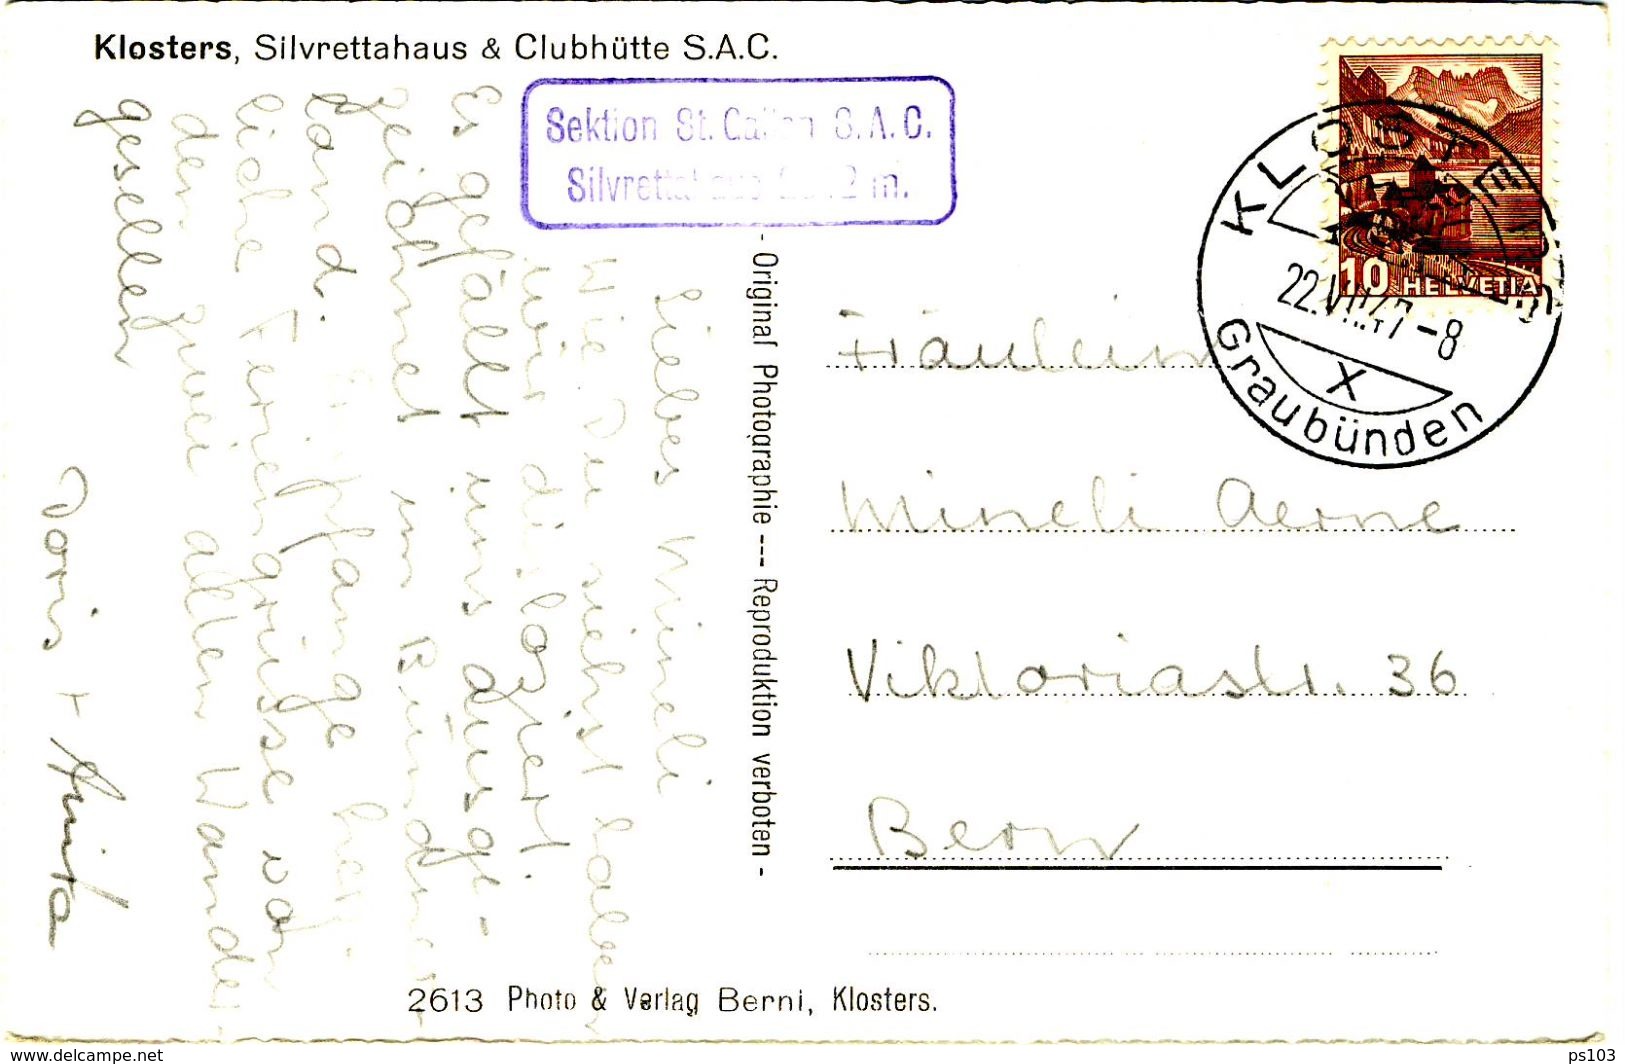 Klosters, Silvrettahaus & Clubhütte S.A.C.
Sektion St. Gallen S.A.C.
Silvrettahaus 2 m.
KLOSTERS
22.VII.47-8
X
Graubünden
10 HELVETIA
Liebes Mineli
Wie Du siehst haben
wir disloziert.
Es gefällt uns ausge-
zeichnet im Bündner-
land. Empfange herz-
liche Feriengrüsse von
den zwei alten Wander-
gesellen
Doris + Anita
- Original Photographie --- Reproduktion verboten -
Fräulein
Mineli Aerne
Viktoriastr. 36
Bern
2613 Photo & Verlag Berni, Klosters.
www.delcampe.net
ps103